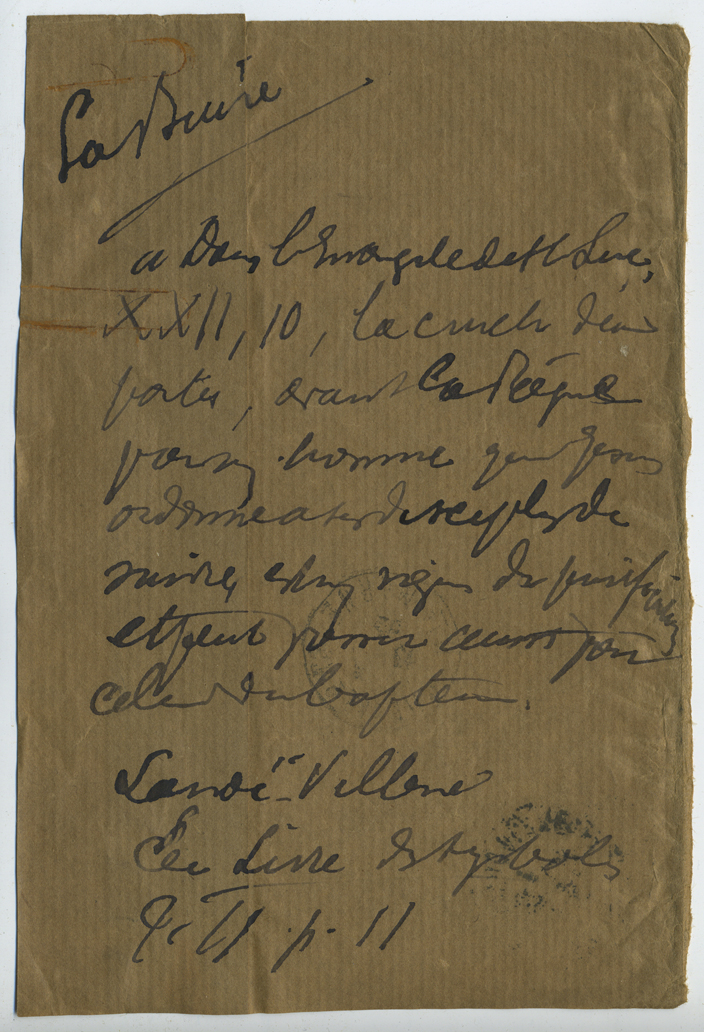 La Buire
« Dans l'Evangile de St Luc,
XXII, 10, la cruche d'eau
portée, avant La Pâque
par un homme que Jésus
ordonne à ses disciples de
suivre, est un signe de purification
et peut passer aussi pour
celui du baptême.
Lanoë-Villène
Le Livre des symboles
T. II p. 11